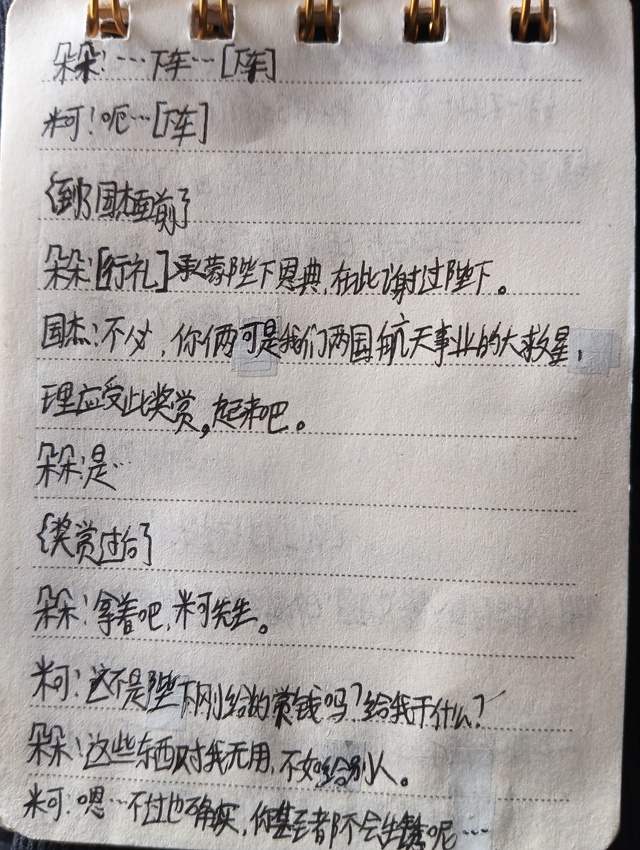 朵朵:…下车…[下车]
柯:呃…[下车]
{到了国杰面前}
朵朵:[行礼]承蒙陛下恩典,在此谢过陛下。
国杰:不必,你俩可是我们两国航天事业的大救星,
理应受此奖赏,起来吧。
朵朵:是…
{奖赏过后}
朵朵:拿着吧,米可先生。
米可:这不是陛下刚给的赏钱吗?给我干什么?
朵朵:这些东西对我无用,不如给别人。
米可:嗯…不过也确实,你甚至都不会生锈呢…